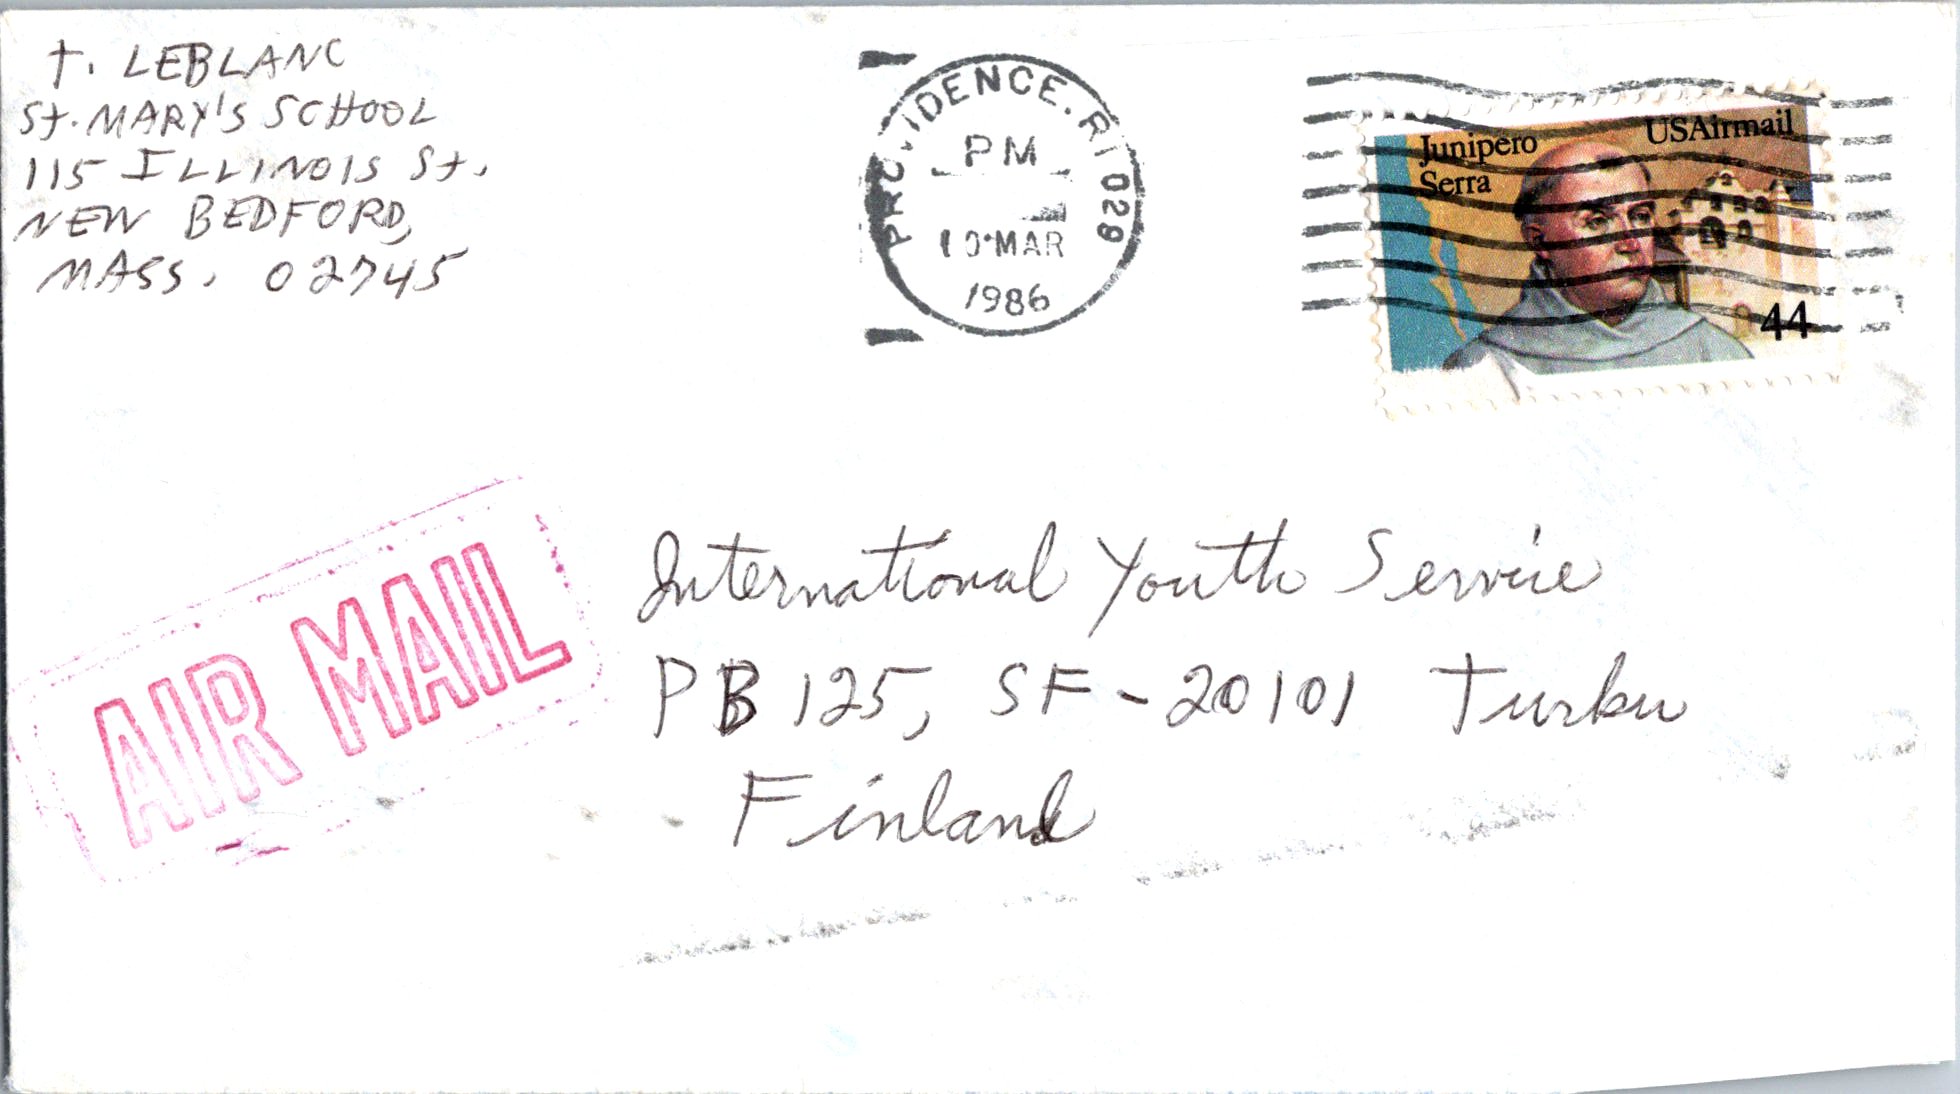 T. LEBLANC
St. MARY'S SCHOOL
115 ILLINOIS St.
NEW BEDFORD,
MASS. 02745
PROVIDENCE, RI 029
PM
10 MAR
1986
Junipero
Serra
USAirmail
44
AIR MAIL
International Youth Service
PB 125, SF-20101 Turku
Finland